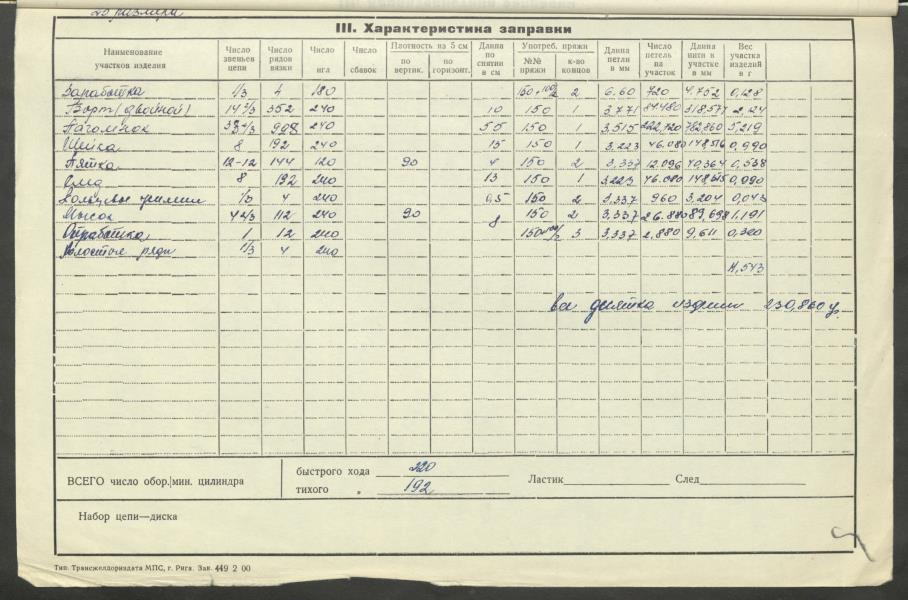 25 размера
III. Характеристика заправки
Наименование участков изделия | Число звеньев цепи | Число рядов вязки | Число игл | Число сбавок | Плотность на 5 см по вертик. | по горизонт. | Длина по снятии в см | Употреб. пряжи №№ пряжи | к-во концов | Длина петли в мм | Число петель на участок | Длина нити в участке в мм | Вес участка изделий в г
Заработка 1/3 4 180 150+100/2 2 6.60 720 4.752 0,128
Борт (двойной) 14 2/3 352 240 10 150 1 3.771 84480 318.577
Паголенок 240 55 150 1 3,515 782,860 5,219
Шейка 8 192 240 15 150 1 3.223 46.080 0,990
Пятка 12-12 144 120 90 4 150 2 3.337 12.096 40,364 0,538
След 8 192 240 13 150 1 3.223 46.080
Кольцевые 1/3 4 240 0,5 150 2 3.337 960 3.204 0,043
Мысок 4 2/3 112 240 90 8 150 2 3.337 26.880 89,698 1.191
Отработка 1 12 240 3 3.337 2.880 9,611 0,300
Холостые ряды 1/3 4 240
11,543
вес десятка изделий 230,860 г.
ВСЕГО число обор./мин. цилиндра
быстрого хода 220
тихого „ 192
Ластик След
Набор цепи—диска
Тип. Трансжелдориздата МПС, г. Рига. Зак. 449 2 00